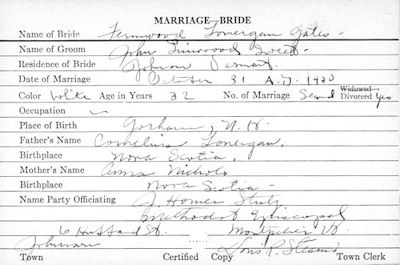 MARRIAGE—BRIDE
Name of Bride Fernwood Lonergan Gates -
Name of Groom John Linwood Sweet -
Residence of Bride Johnson Vermont
Date of Marriage October 31 A.D. 1920
Color White Age in Years 32 No. of Marriage Second Widowed Divorced Yes
Occupation -
Place of Birth Gorham, N.H.
Father's Name Cornelius Lonergan,
Birthplace Nova Scotia,
Mother's Name Anna Nichols
Birthplace Nova Scotia -
Name Party Officiating J. Homer
Methodist Episcopal
6 St. Montpelier Vt.
Johnson P. Stearns
Town Certified Copy Town Clerk